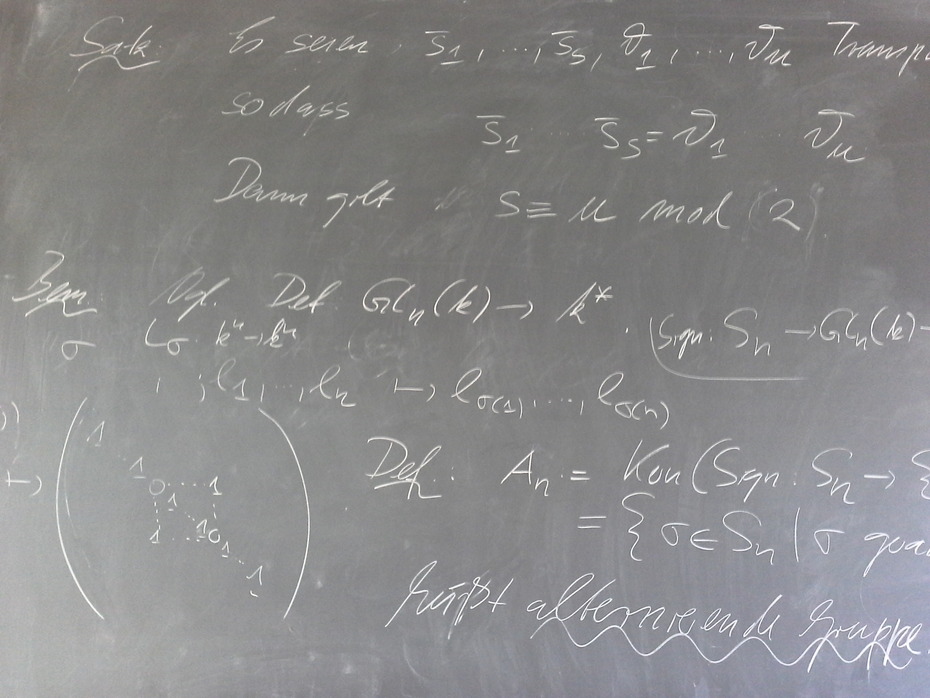 Satz: Es seien s̄1, ..., s̄s, ϑ̄1, ..., ϑ̄u Transp
sodass
s̄1 ... s̄s = ϑ̄1 ... ϑ̄u
Dann gilt s ≡ u mod (2).
Bem. Vgl. Det GLn(k) → k*
σ Lσ: kⁿ → kⁿ
Sign: Sn → GLn(k) →
l1, ..., ln ↦ lσ(1), ..., lσ(n)
) ↦ ( 1 1 0 ... 1 1 1 ... 1 0 1 1 )
Def.: An = Kern(Sign: Sn → {
= {σ ∈ Sn | σ gera
heißt alternierende Gruppe.